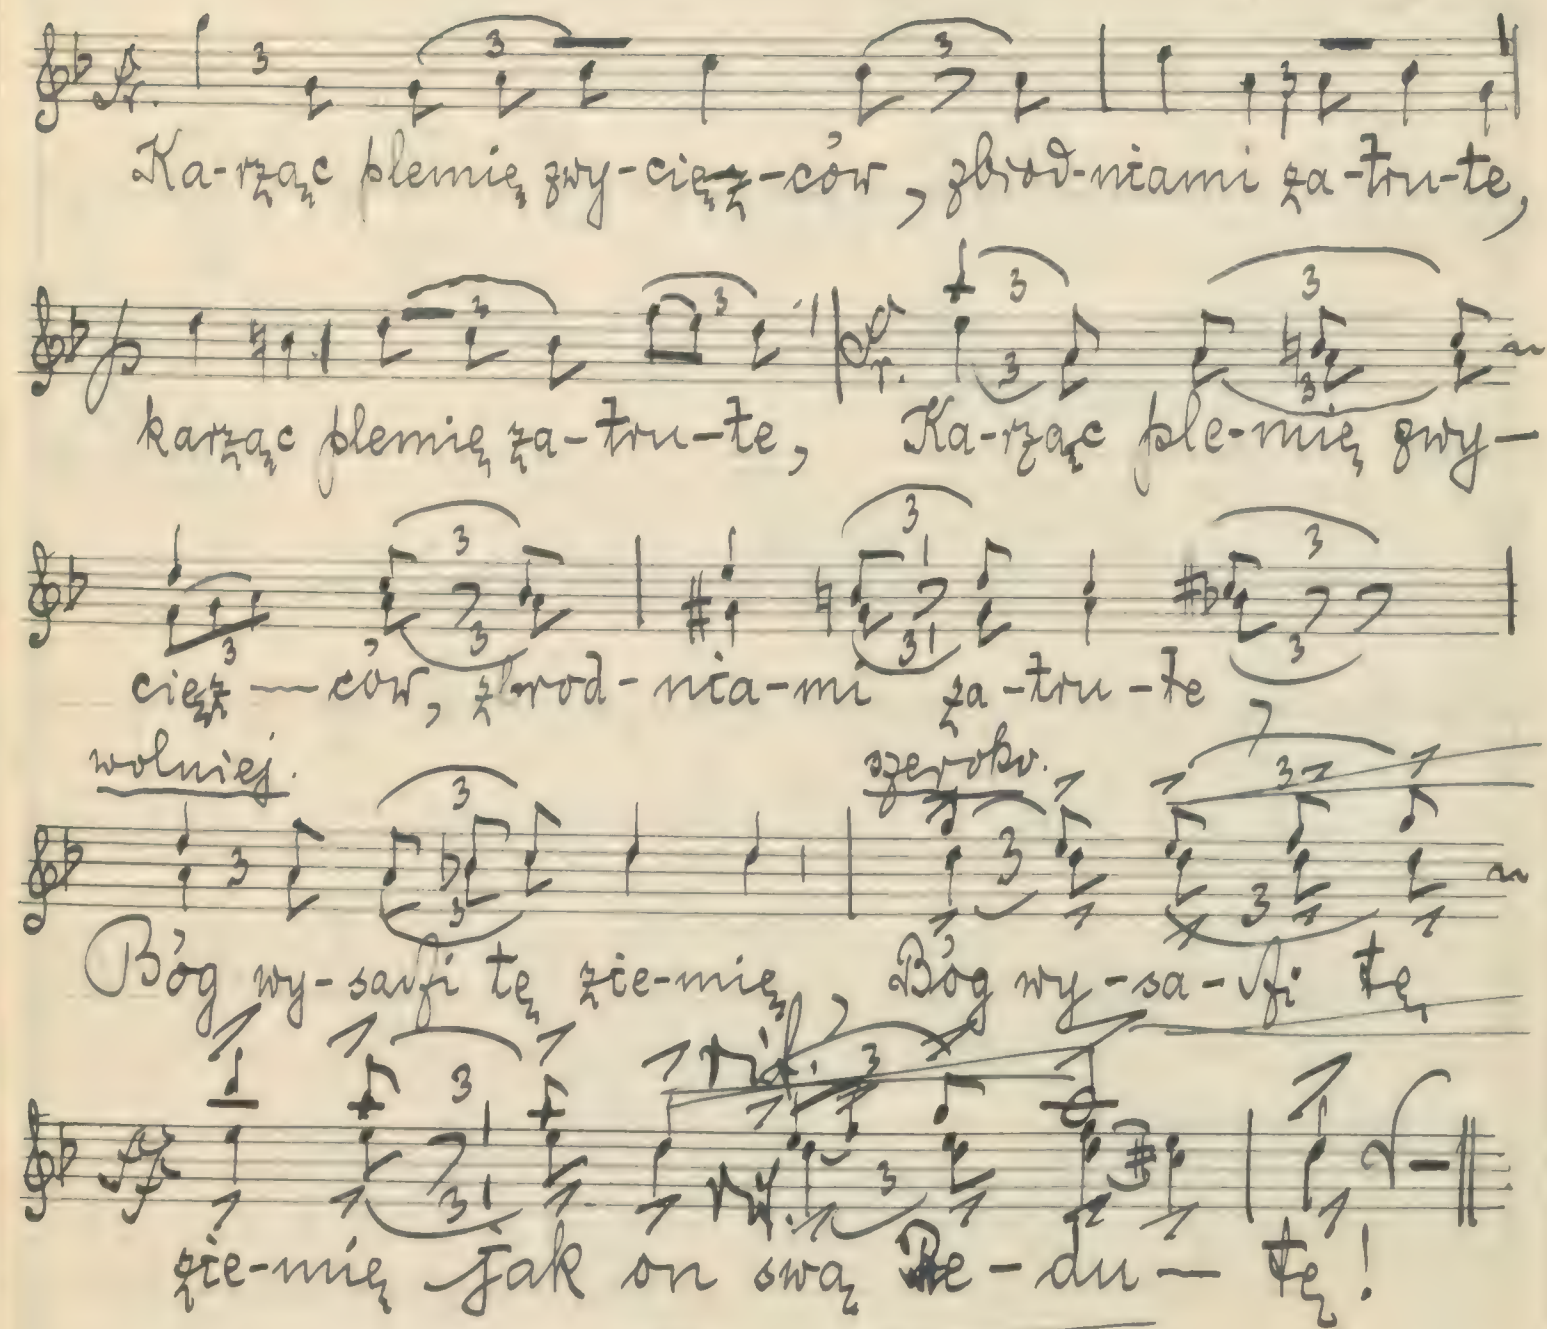 Ka-rząc plemię zwy-cięz-ców, zbrod-niami za-tru-te,
karząc plemię za-tru-te, Ka-rząc ple-mię zwy-
cięz-ców, zbrod-nia-mi za-tru-te
wolniej. szeroko.
Bóg wy-sadzi tę zie-mię, Bóg wy-sa-dzi tę
zie-mię jak on swą Re-du-tę!